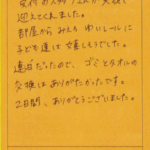 迎えてくれました。
部屋から みえる ゆいレールに
子ども達は 大喜びでした。
連泊だったので、ゴミとタオルの
交換は ありがたかったです。
2日間、ありがとうございました。